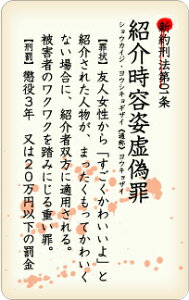 新約刑法第01条
紹介時容姿虚偽罪
ショウカイジ・ヨウシキョギザイ《通称》ヨウキョザイ
【罪状】友人女性から「すごくかわいいよ」と
紹介された人物が、まったくもってかわいく
ない場合に、紹介者双方に適用される。
被害者のワクワクを踏みにじる重い罪。
【刑罰】懲役3年 又は20万円以下の罰金